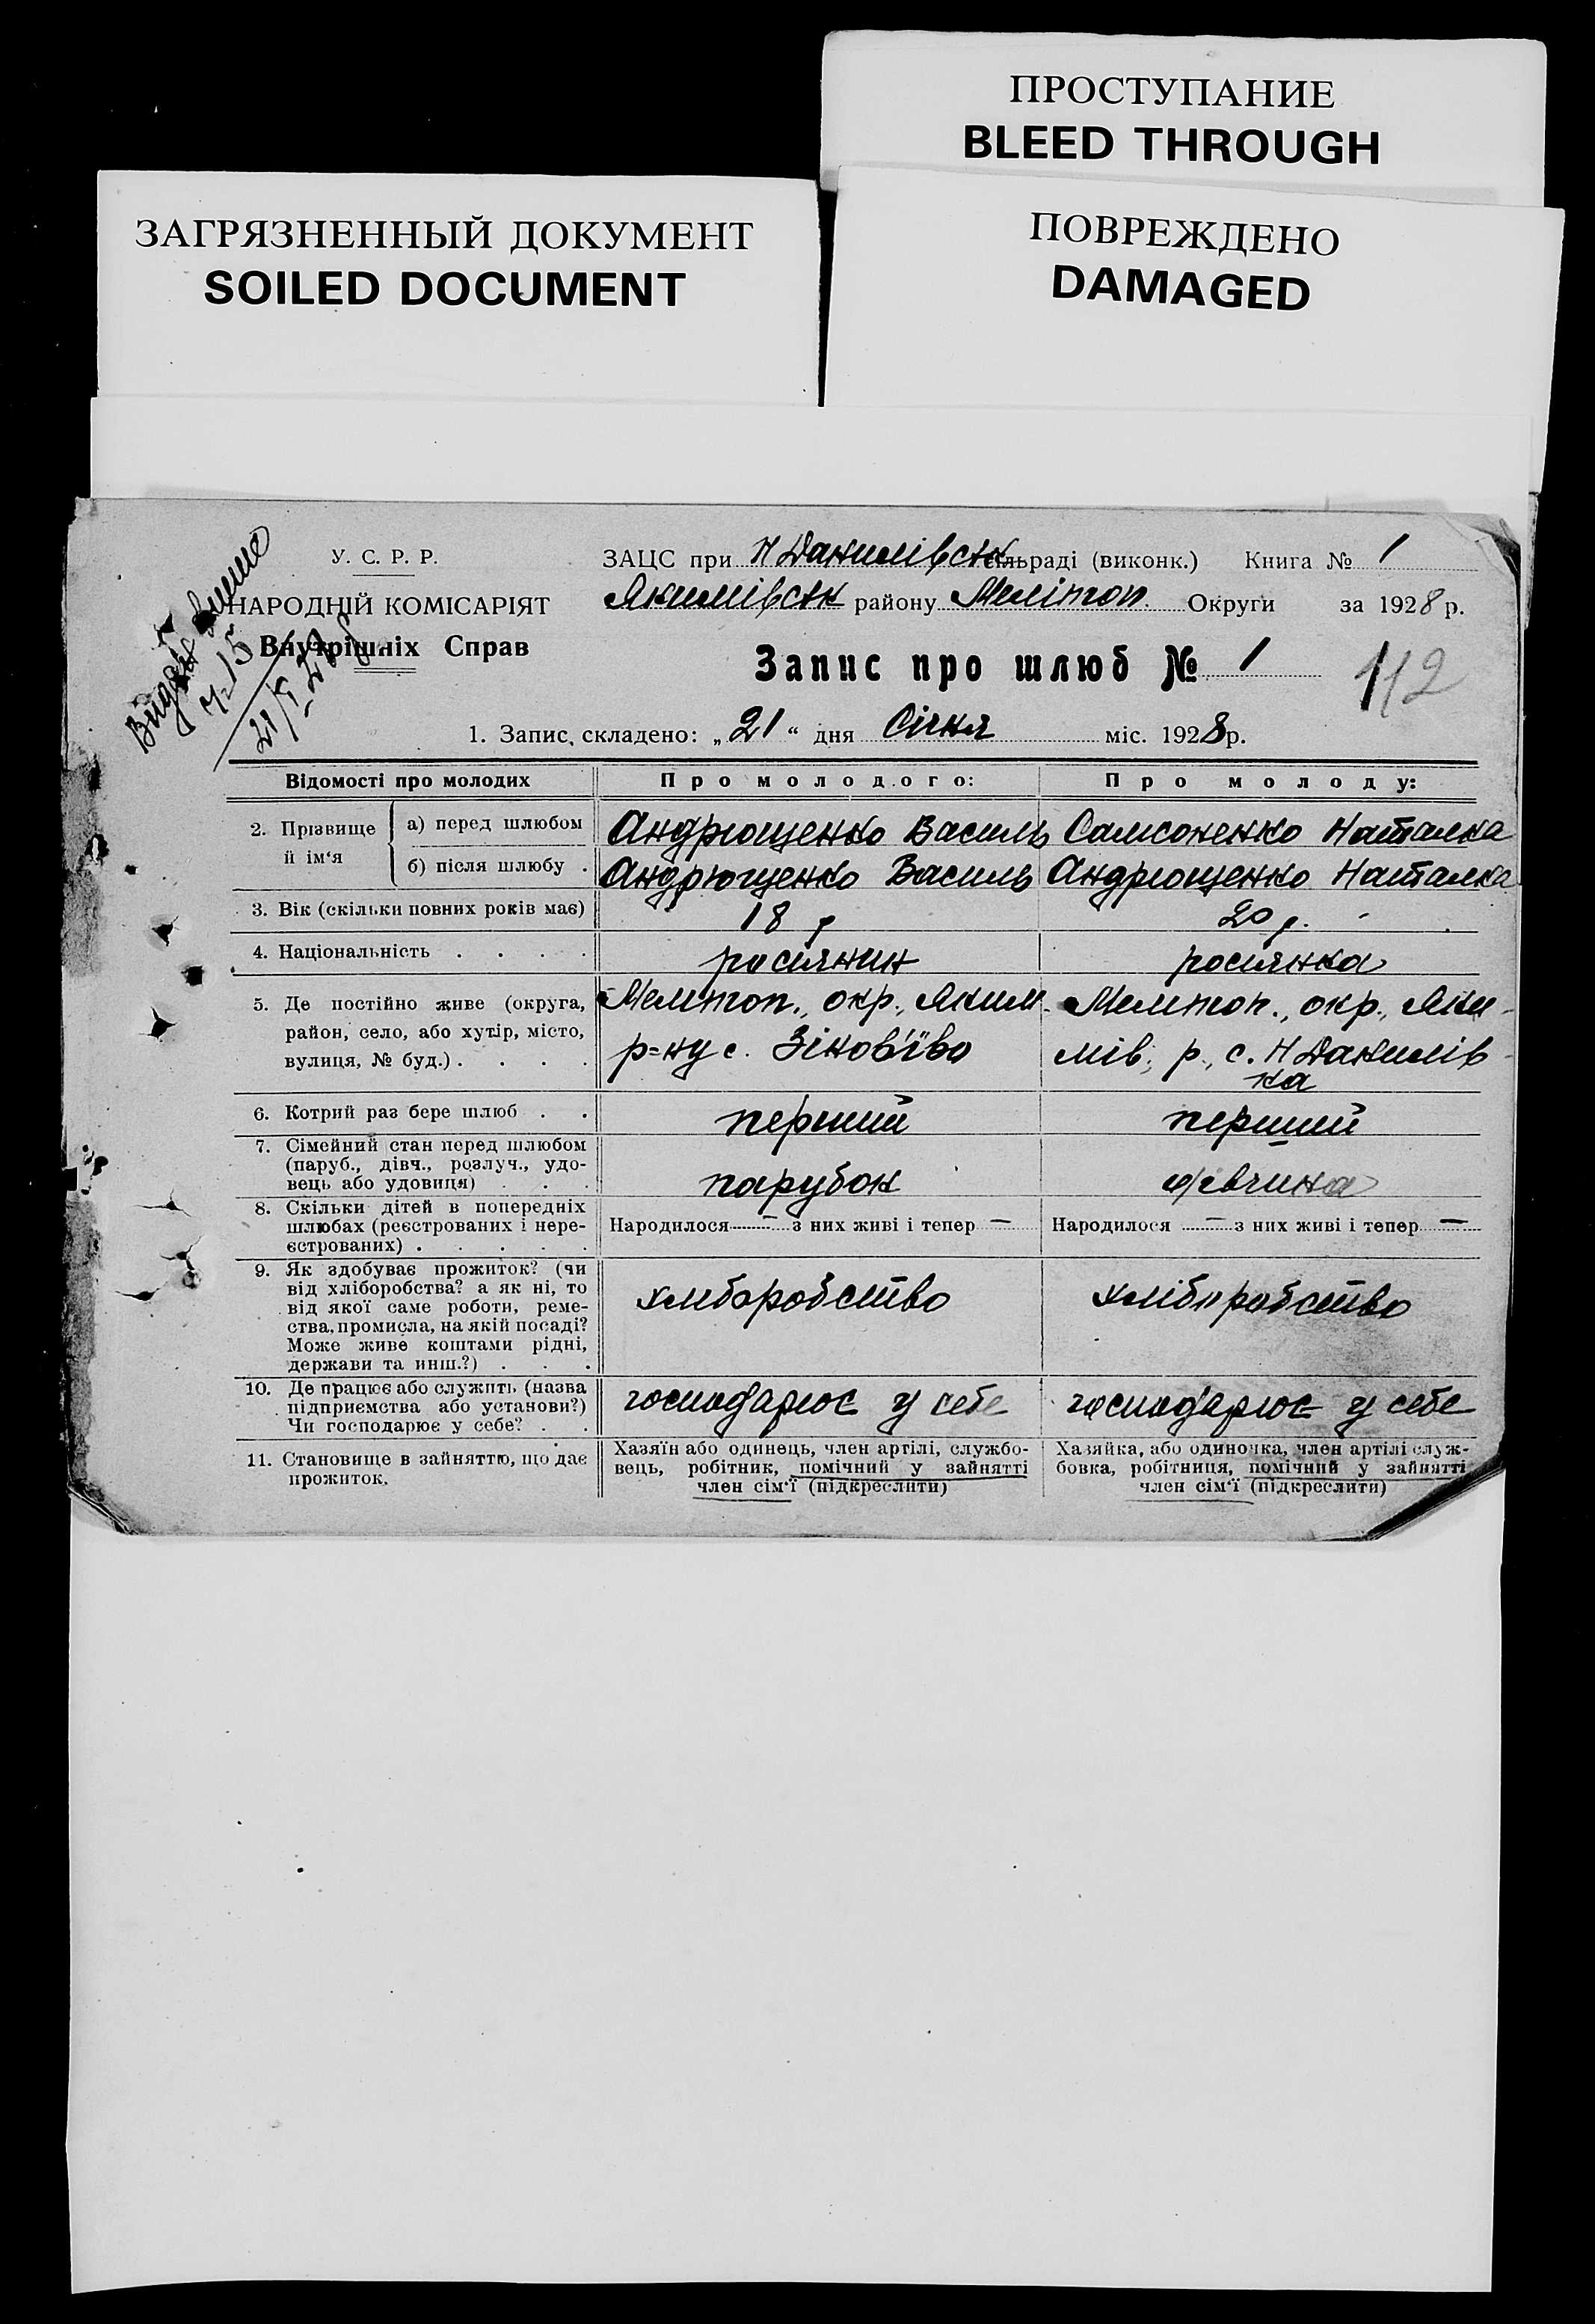 ПРОСТУПАНИЕ
BLEED THROUGH
ЗАГРЯЗНЕННЫЙ ДОКУМЕНТ
SOILED DOCUMENT
ПОВРЕЖДЕНО
DAMAGED
У. С. Р. Р.
НАРОДНІЙ КОМІСАРІЯТ
Внутрішніх Справ
ч. 15
21/I-28
ЗАЦС при Н Данилівськ сільраді (виконк.) Книга № 1
Якимівськ району Мелітоп. Округи за 1928 р.
Запис про шлюб № 1
112
1. Запис складено: „21“ дня Січня міс. 1928р.
Відомості про молодих
Про молодого:
Про молоду:
2. Прізвище й ім‘я
а) перед шлюбом
Андрющенко Василь
Самсоненко Наталка
б) після шлюбу .
Андрющенко Василь
Андрющенко Наталка
3. Вік (скільки повних років має)
18 р
20 р.
4. Національність . . . .
росіянин
росіянка
5. Де постійно живе (округа,
район, село, або хутір, місто,
вулиця, № буд.) . . . .
Мелітоп., окр., Яким.
р=ну с. Зіков'їво
Мелітоп., окр., Яки-
мів; р., с. Н Данилів-
ка
6. Котрий раз бере шлюб . .
перший
перший
7. Сімейний стан перед шлюбом
(паруб., дівч., розлуч., удо-
вець або удовиця) . . .
парубок
дівчина
8. Скільки дітей в попередніх
шлюбах (реєстрованих і нере-
єстрованих) . . . . .
Народилося — з них живі і тепер —
Народилося — з них живі і тепер —
9. Як здобуває прожиток? (чи
від хліборобства? а як ні, то
від якої саме роботи, реме-
ства, промисла, на якій посаді?
Може живе коштами рідні,
держави та инш.?) . . .
хліборобство
хліборобство
10. Де працює або служить (назва
підприємства або установи?)
Чи господарює у себе? . .
господарює у себе
господарює у себе
11. Становище в зайняттю, що дає
прожиток.
Хазяїн або одинець, член артілі, службо-
вець, робітник, помічний у зайнятті
член сім‘ї (підкреслити)
Хазяйка, або одиночка, член артілі служ-
бовка, робітниця, помічний у зайнятті
член сім‘ї (підкреслити)